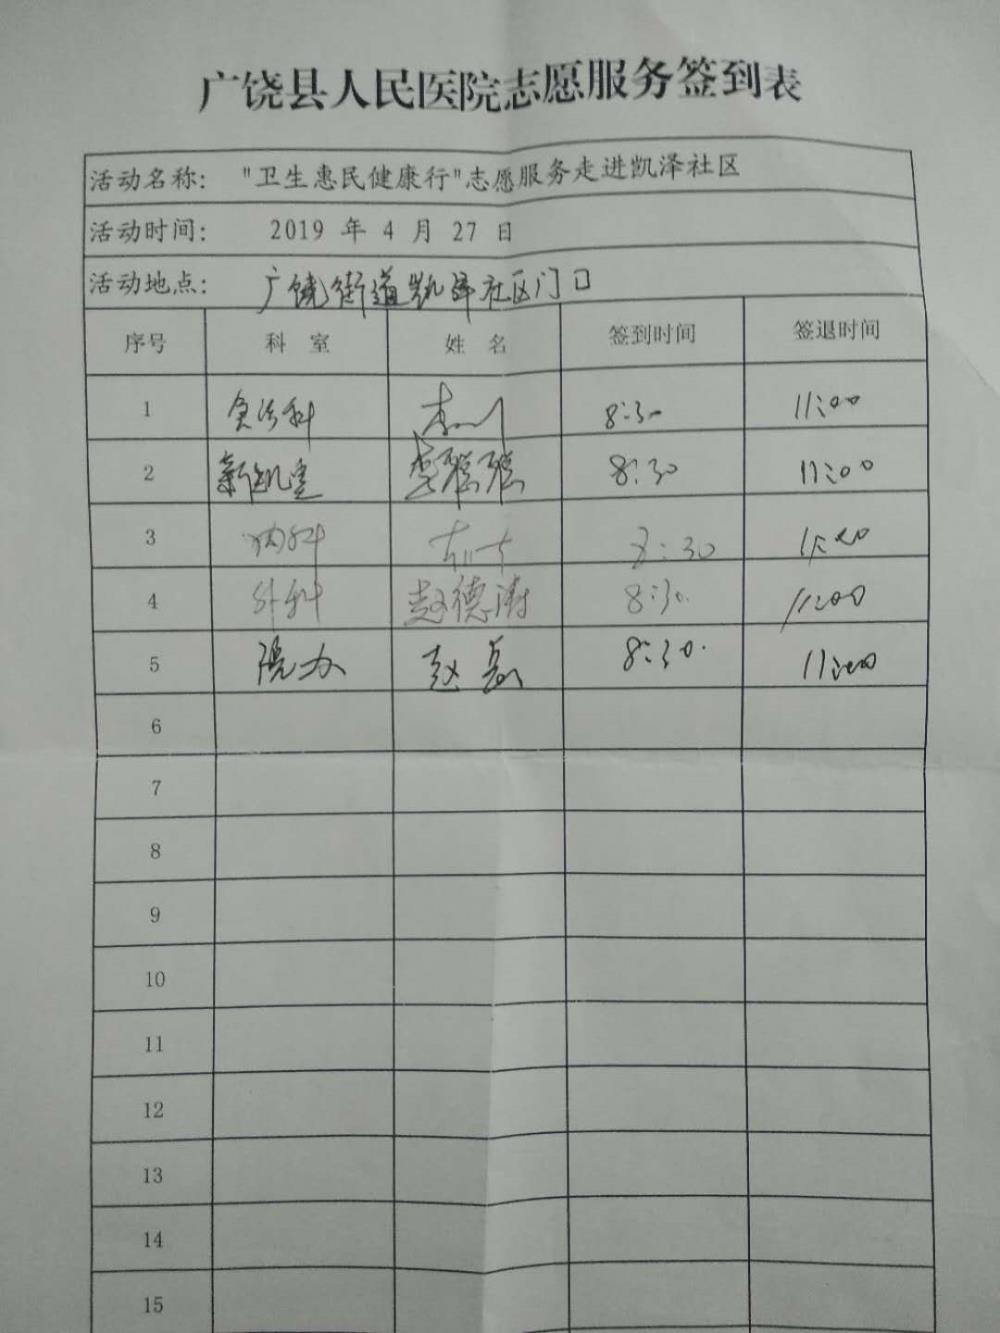 广饶县人民医院志愿服务签到表
活动名称: "卫生惠民健康行"志愿服务走进凯泽社区
活动时间: 2019 年 4 月 27 日
活动地点: 广饶街道凯泽社区门口
序号 科 室 姓 名 签到时间 签退时间
1 8:30 11:00
2 8:30 11:00
3 内科 8:30 11:00
4 外科 赵德涛 8:30 11:00
5 院办 赵磊 8:30 11:00
6
7
8
9
10
11
12
13
14
15